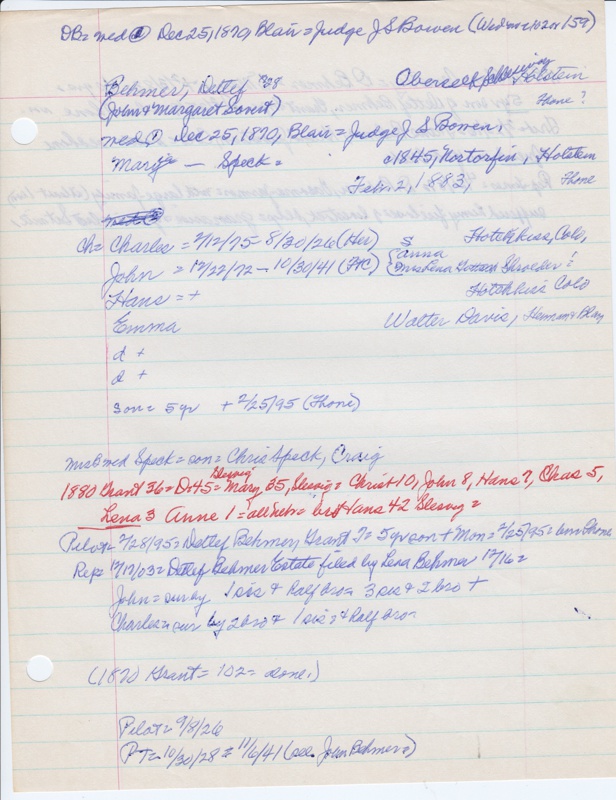 DB = med ① Dec 25, 1870, Blair = Judge J S Bowen (Wed
Behmer, Detlef Holstein
(John & Margaret Home?
med ① Dec 25, 1870, Blair = Judge J S Bowen,
Mary — Speck = c1845, Nortorfin, Holstein
Feb. 2, 1883, Home
ch = Charles = 2/12/75 - 8/30/26 (Her) Hotchkiss, Colo,
John = 12/22/72 - 10/30/41 (PTC) Anna Mrs Lena Schroeder!
Hans = + Hotchkiss Colo
Emma Walter Davis, Herman, Blair
d +
d +
son = 5 yr + 2/25/95 (Home)
Mrs B med Speck = son = Chris Speck, Craig
1880 Grant 36 = Dt 45 = Mary 35, Slesvig = Christ 10, John 8, Hans 7, Chas 5,
Lena 3 Anne 1 = all Nebr = bro Hans 42 Slesvig =
Pilot = 2/28/95 = Detlef Behmer, Grant T = 5 yr son + Mon = 2/25/95 = Home
Rep = 12/17/03 = Detlef Behmer Estate filed by Lena Behmer 12/16 =
John = sur by 1 sis & half bro = 3 sis & 2 bro +
Charles = sur by 2 bro & 1 sis = & half bro =
(1870 Grant = 102 = alone.)
Pilot = 9/8/26
PT = 10/30/28 & 11/6/41 (see John Behmer)